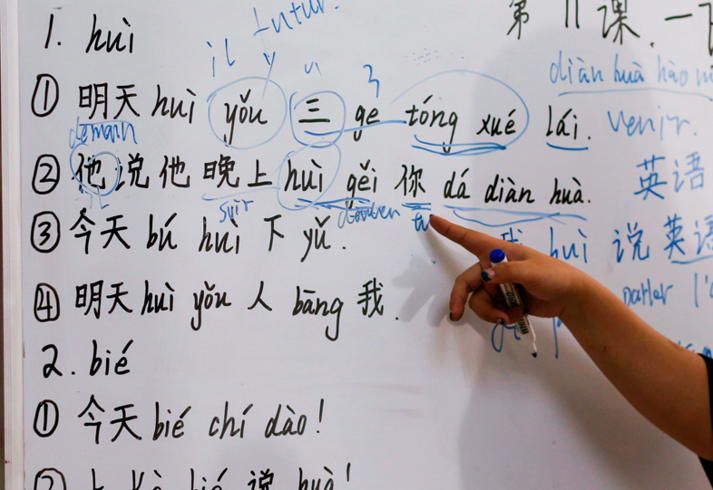 第 11 课 . 一
1. huì
futur.
il y
diàn huà hào
① 明天 huì yǒu 三 ge tóng xué lái. venir.
demain
② 他说他晚上 huì gěi 你 dá diàn huà. 英语
soir tu
③ 今天 bú huì 下 yǔ. 我 huì 说英语
④ 明天 huì yǒu 人 bāng 我. parler l'
2. bié
① 今天 bié chí dào!
② bié 说 huà!